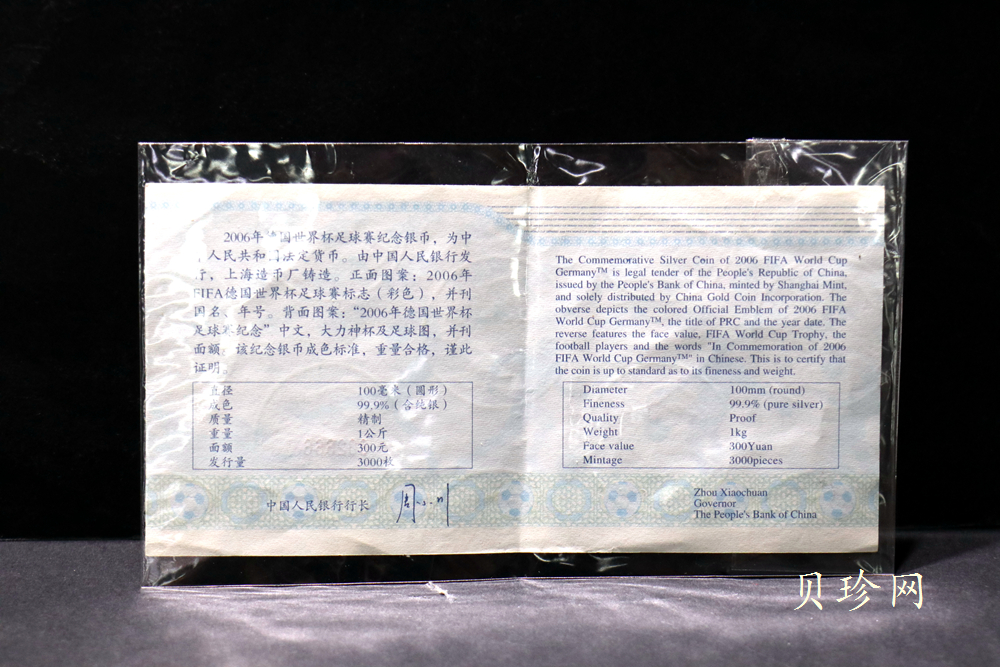 2006年 国世界杯足球赛纪念银币，为中
人民共和 法定货币。由中国人民银行发
行，上海造币厂铸造。正面图案：2006年
FIFA德国世界杯足球赛标志（彩色），并刊
国名、年号。背面图案：“2006年德国世界杯
足球赛纪念”中文，大力神杯及足球图，并刊
面额。该纪念银币成色标准，重量合格，谨此
证明。
直径 100毫米（圆形）
成色 99.9%（含纯银）
质量 精制
重量 1公斤
面额 300元
发行量 3000枚
中国人民银行行长
The Commemorative Silver Coin of 2006 FIFA World Cup
Germany™ is legal tender of the People's Republic of China,
issued by the People's Bank of China, minted by Shanghai Mint,
and solely distributed by China Gold Coin Incorporation. The
obverse depicts the colored Official Emblem of 2006 FIFA
World Cup Germany™, the title of PRC and the year date. The
reverse features the face value, FIFA World Cup Trophy, the
football players and the words "In Commemoration of 2006
FIFA World Cup Germany™" in Chinese. This is to certify that
the coin is up to standard as to its fineness and weight.
Diameter 100mm (round)
Fineness 99.9% (pure silver)
Quality Proof
Weight 1kg
Face value 300Yuan
Mintage 3000pieces
Zhou Xiaochuan
Governor
The People's Bank of China
贝珍网